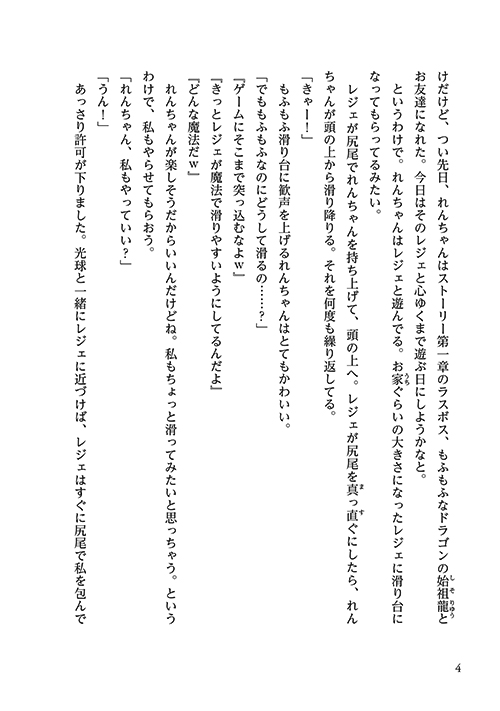 けだけど、つい先日、れんちゃんはストーリー第一章のラスボス、もふもふなドラゴンの始祖龍と
お友達になれた。今日はそのレジェと心ゆくまで遊ぶ日にしようかなと。
というわけで。れんちゃんはレジェと遊んでる。お家ぐらいの大きさになったレジェに滑り台に
なってもらってるみたい。
レジェが尻尾でれんちゃんを持ち上げて、頭の上へ。レジェが尻尾を真っ直ぐにしたら、れん
ちゃんが頭の上から滑り降りる。それを何度も繰り返してる。
「きゃー！」
もふもふ滑り台に歓声を上げるれんちゃんはとてもかわいい。
「でももふもふなのにどうして滑るの……？」
『ゲームにそこまで突っ込むなよｗ』
『きっとレジェが魔法で滑りやすいようにしてるんだよ』
『どんな魔法だｗ』
れんちゃんが楽しそうだからいいんだけどね。私もちょっと滑ってみたいと思っちゃう。という
わけで、私もやらせてもらおう。
「れんちゃん、私もやっていい？」
「うん！」
あっさり許可が下りました。光球と一緒にレジェに近づけば、レジェはすぐに尻尾で私を包んで
4